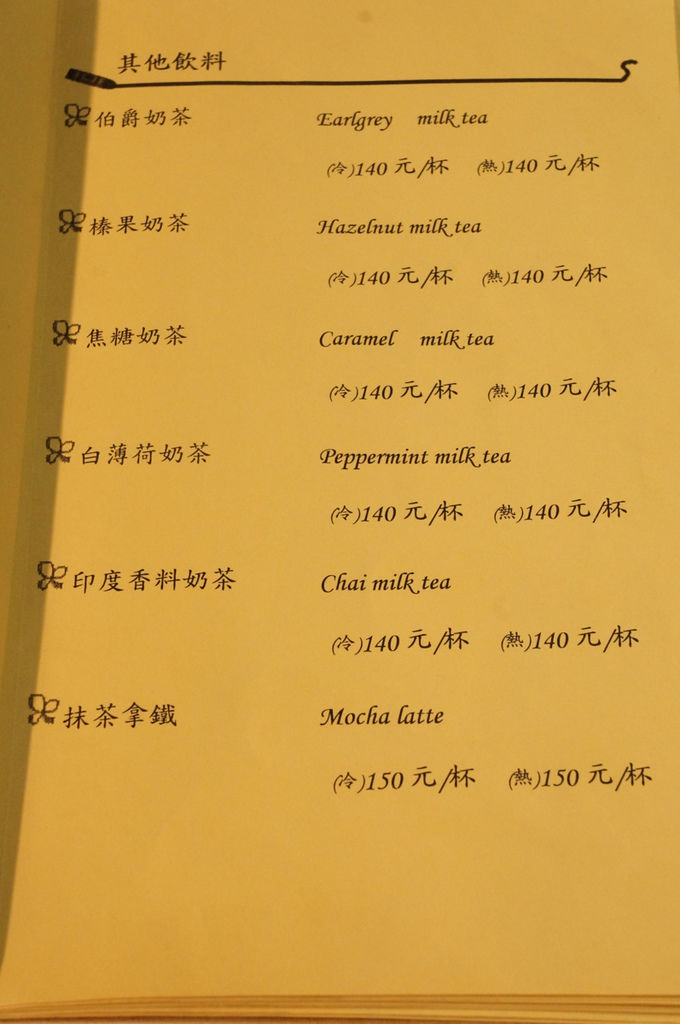 其他飲料
伯爵奶茶 Earlgrey milk tea
(冷)140 元/杯 (熱)140 元/杯
榛果奶茶 Hazelnut milk tea
(冷)140 元/杯 (熱)140 元/杯
焦糖奶茶 Caramel milk tea
(冷)140 元/杯 (熱)140 元/杯
白薄荷奶茶 Peppermint milk tea
(冷)140 元/杯 (熱)140 元/杯
印度香料奶茶 Chai milk tea
(冷)140 元/杯 (熱)140 元/杯
抹茶拿鐵 Mocha latte
(冷)150 元/杯 (熱)150 元/杯